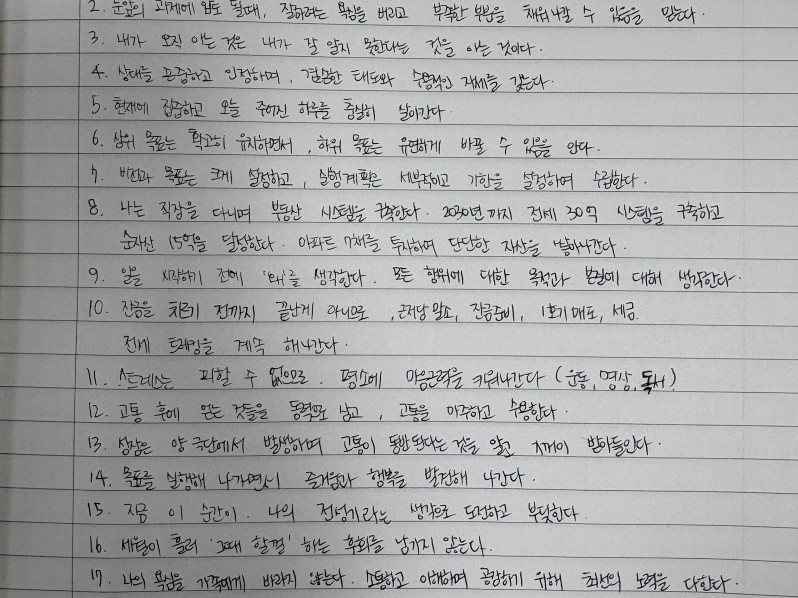 2. 눈앞의 과제에 압도 될때, 잘하려는 욕심을 버리고 부족한 부분을 채워나갈 수 있음을 믿는다.
3. 내가 오직 아는 것은 내가 잘 알지 못한다는 것을 아는 것이다.
4. 상대를 존중하고 인정하며, 겸손한 태도와 수용적인 자세를 갖는다.
5. 현재에 집중하고 오늘 주어진 하루를 충실히 살아간다.
6. 상위 목표는 확고히 유지하면서, 하위 목표는 유연하게 바꿀 수 있음을 안다.
7. 비전과 목표는 크게 설정하고, 실행계획은 세부적이고 기한을 설정하여 수립한다.
8. 나는 직장을 다니며 부동산 시스템을 구축한다. 2030년까지 전세 30억 시스템을 구축하고
순자산 15억을 달성한다. 아파트 7채를 투자하여 단단한 자산을 쌓아나간다.
9. 일을 시작하기 전에 '왜'를 생각한다. 모든 행위에 대한 목적과 본질에 대해 생각한다.
10. 잔금을 치르기 전까지 끝난게 아니므로, 근저당 말소, 잔금준비, 1호기 매도, 세금.
전세 트레킹을 계속 해나간다.
11. 스트레스는 피할 수 없으므로. 평소에 마음근력을 키워나간다 (운동, 명상, 독서)
12. 고통 후에 얻는 것들을 동력으로 삼고, 고통을 마주하고 수용한다.
13. 성장은 양 극단에서 발생하며 고통이 동반된다는 것을 알고 기꺼이 받아들인다.
14. 목표를 실행해 나가면서 즐거움과 행복을 발견해 나간다.
15. 지금 이 순간이. 나의 전성기라는 생각으로 도전하고 부딪힌다.
16. 세월이 흘러 '그때 할걸' 하는 후회를 남기지 않는다.
17. 나의 욕심을 가족에게 바라지 않는다. 소통하고 이해하며 공감하기 위해 최선의 노력을 다한다.